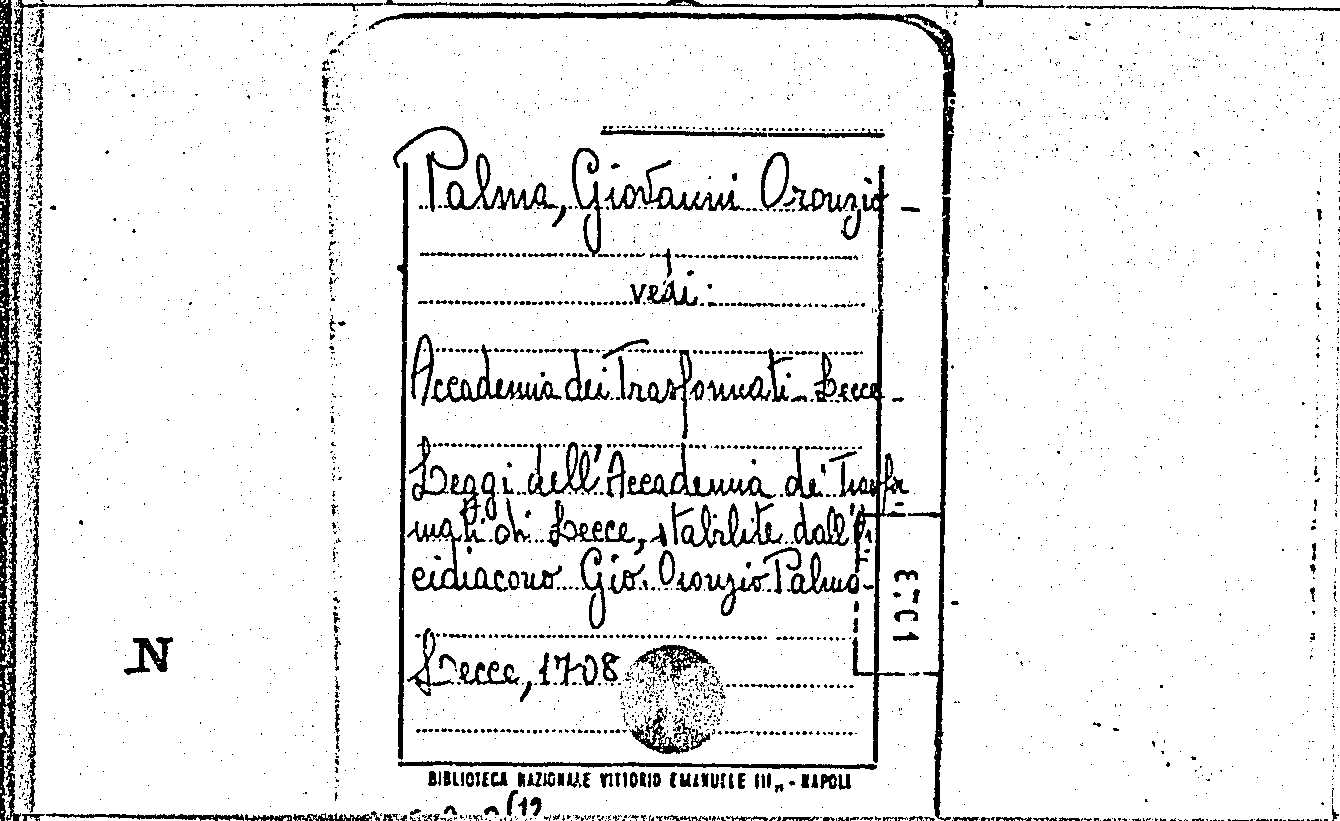 Palma, Giovanni Oronzio -
vedi:
Accademia dei Trasformati - Lecce -
Leggi dell'Accademia dei Trasfor
mati di Lecce, stabilite dall'
cidiacono Gio. Oronzio Palma -
Lecce, 1708
N
BIBLIOTECA NAZIONALE VITTORIO EMANUELE III„ - NAPOLI